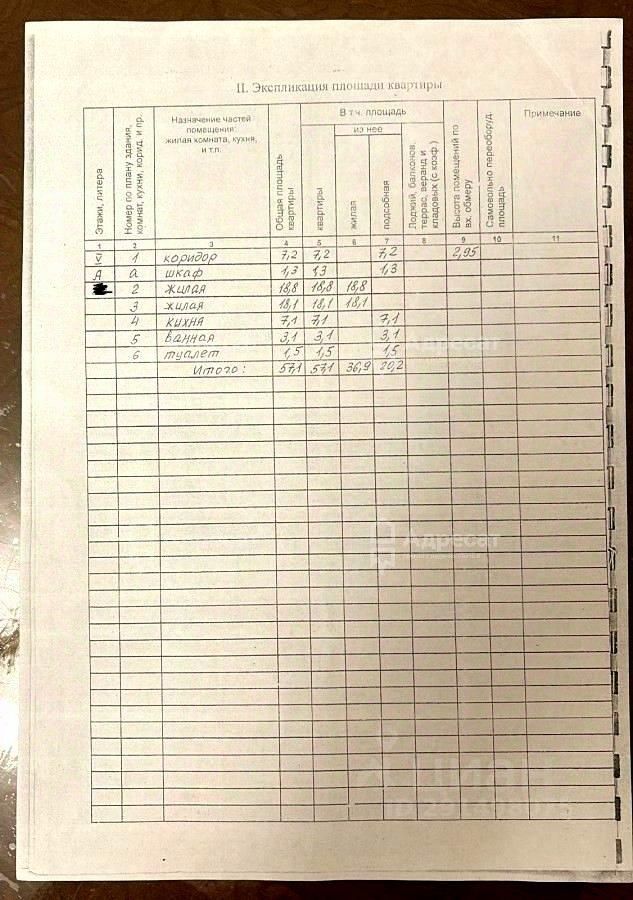 II. Экспликация площади квартиры
Этажи, литера
Номер по плану здания, комнат, кухни, корид. и пр.
Назначение частей помещения: жилая комната, кухня, и т.п.
Общая площадь квартиры
В т.ч. площадь
квартиры
из нее
жилая
подсобная
Лоджий, балконов, террас, веранд и кладовых (с коэф.)
Высота помещений по вх. обмеру
Самовольно переоборуд. площадь
Примечание
1 2 3 4 5 6 7 8 9 10 11
V 1 коридор 7,2 7,2 7,2 2,95
А а шкаф 1,3 1,3 1,3
2 жилая 18,8 18,8 18,8
3 жилая 18,1 18,1 18,1
4 кухня 7,1 7,1 7,1
5 ванная 3,1 3,1 3,1
6 туалет 1,5 1,5 1,5
Итого: 57,1 57,1 36,9 20,2
Адресат
Адресат
циан